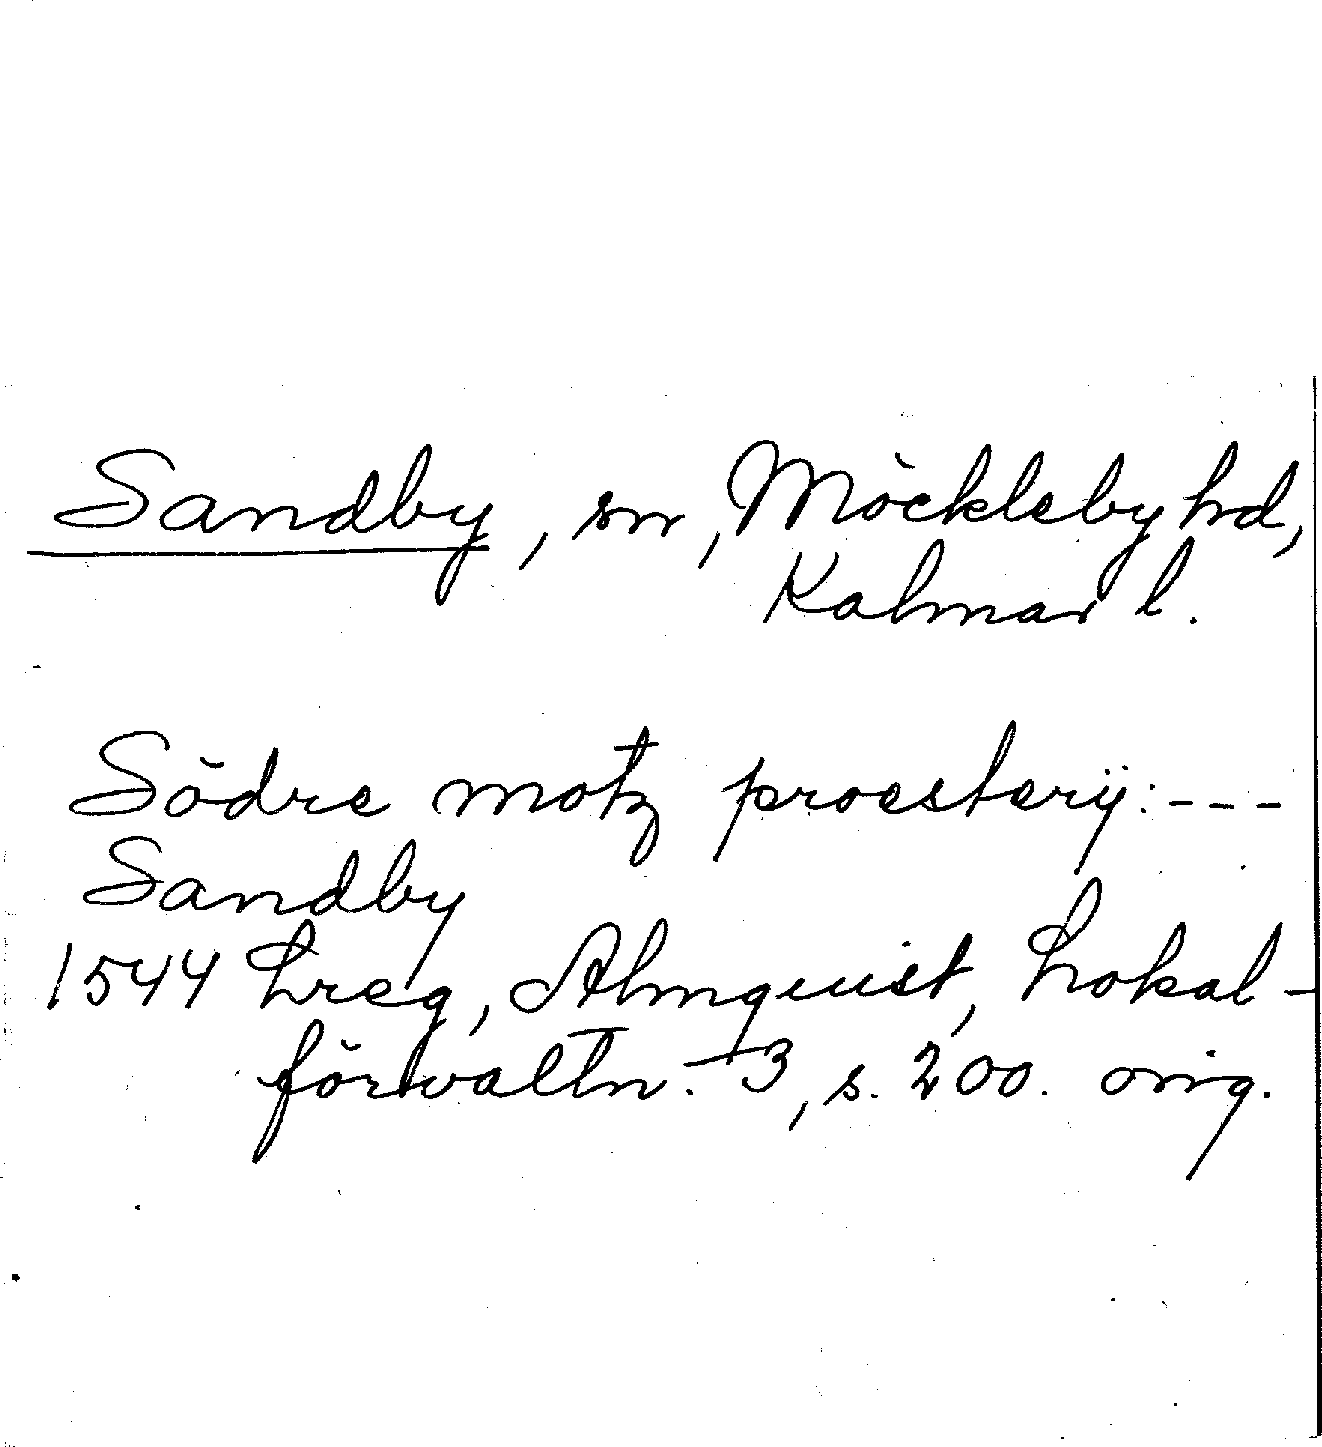 Sandby, sn, Möckleby hd,
Kalmar l.
Södre motz proesterÿ: ---
Sandby
1544 Lreg, Almquist, Lokal-
förvaltn. 3, s. 200. orig.